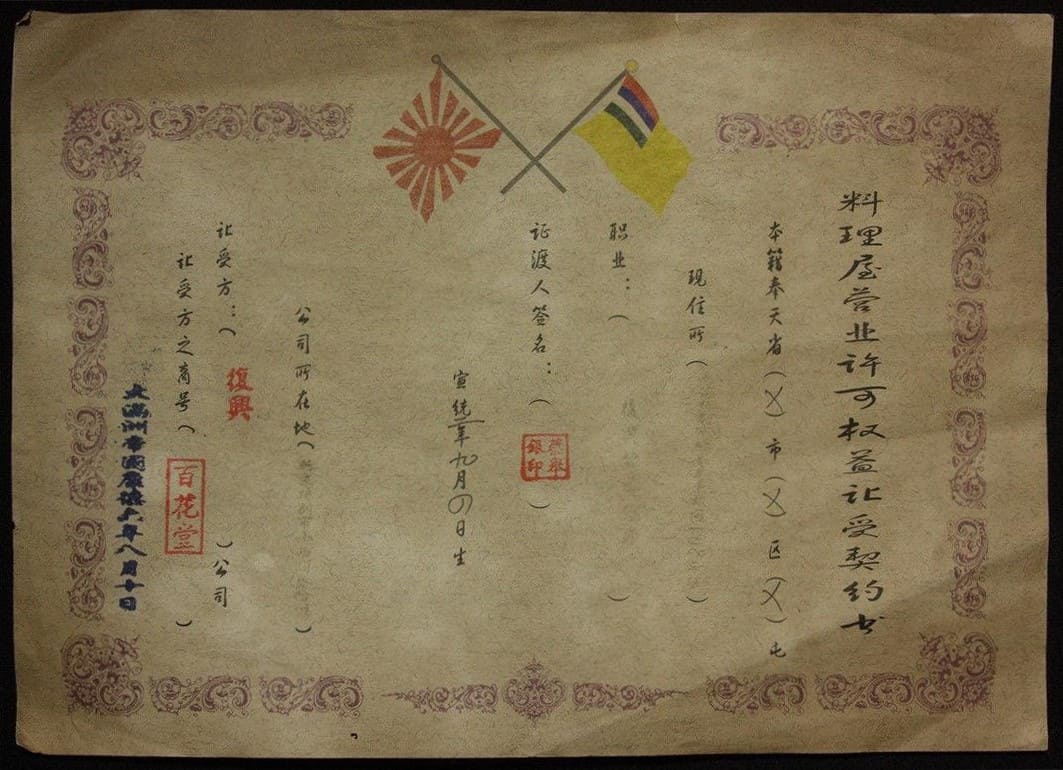 料理屋营业许可权益让受契约书
本籍奉天省（ㄨ）市（ㄨ）区（ㄨ）屯
现住所（ ）
职业：（ ）
证渡人签名：（ 銀印 ）
宣统一年九月四日生
公司所在地（ ）
让受方：（ 復興 ）公司
让受方之商号（ 百花堂 ）
大滿洲帝國康德六年八月十日